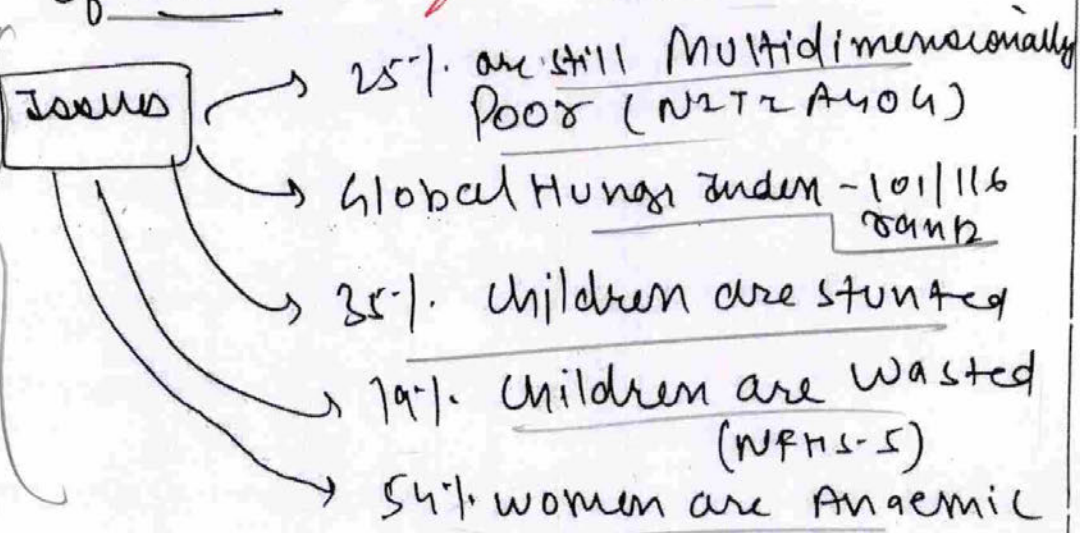 Issues
25% are still Multidimensionally
Poor (NITI AYOG)
Global Hunger Index - 101/116
rank
35% children are stunted
19% children are wasted
(NFHS-5)
54% women are Anaemic